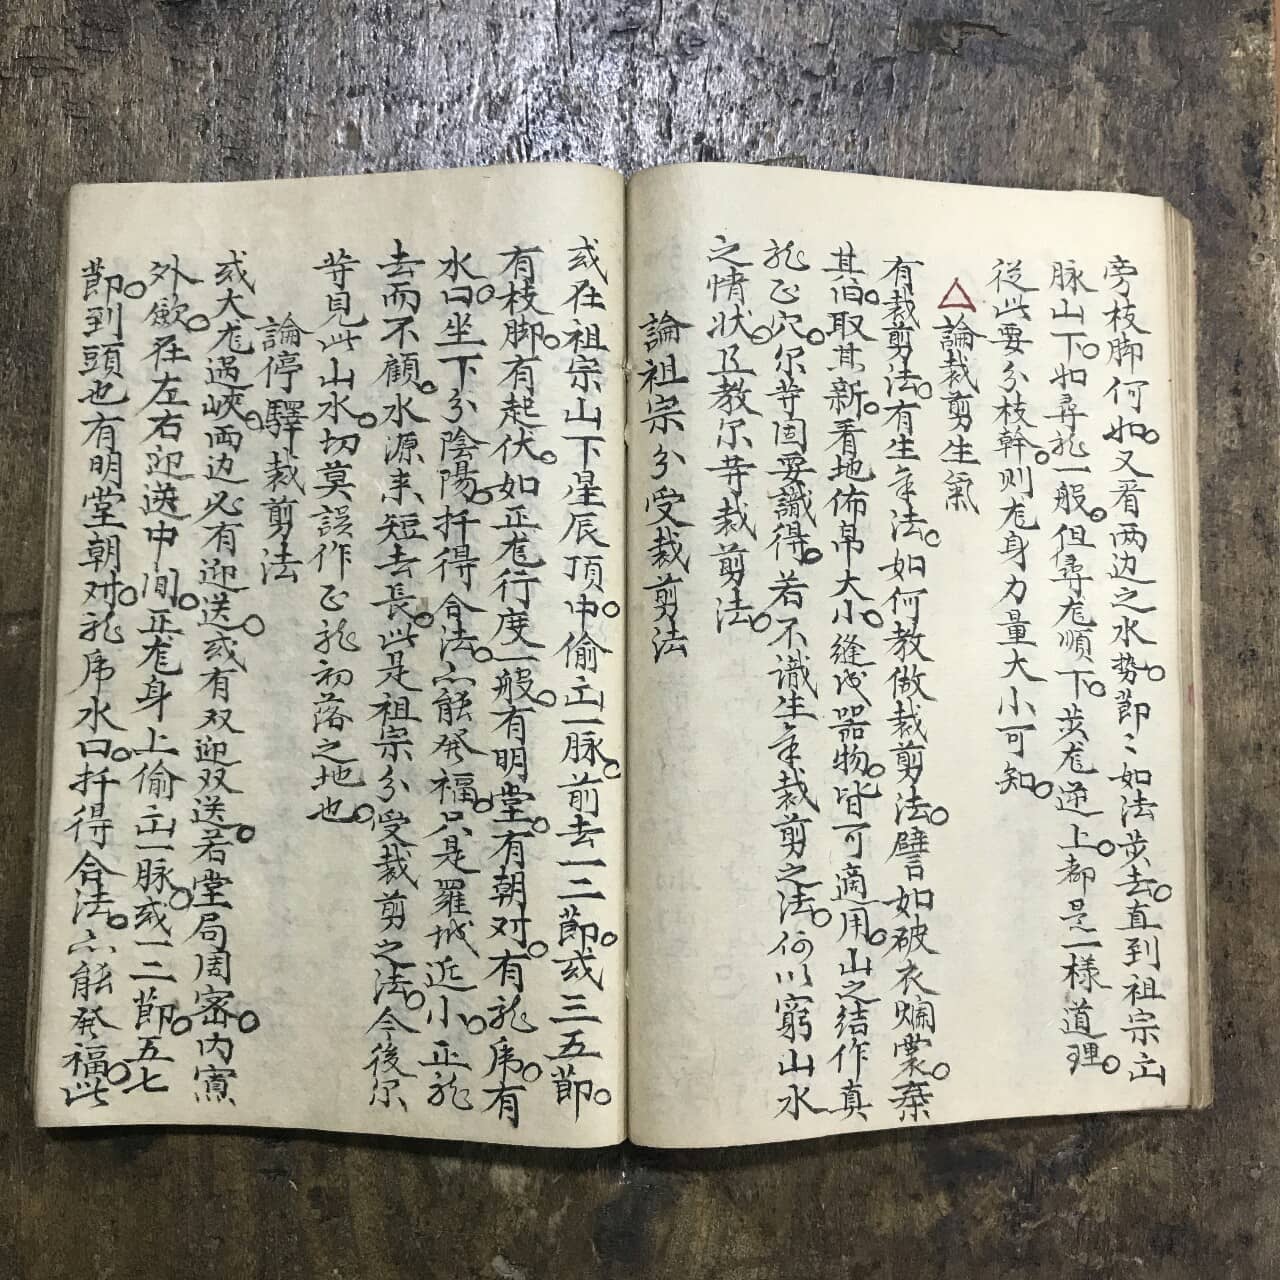 旁枝脚何如。又看两边之水势。節〻如法。步去。直到祖宗出
脉山下。如尋龙一般。但尋龙順下。步龙逆上。都是一樣道理。
從此要分枝幹。则龙身力量大小可知。
論裁剪生氣
有裁剪法。有生气法。如何教做裁剪法。譬如破衣爛裳。棄
其旧。取其新。看地佈帛大小。縫成器物。皆可適用。山之结作真
龍正穴。尔等固要識得。若不識生气裁剪之法。何以窮山水
之情状。且教尔等裁剪法。
論祖宗分受裁剪法
或在祖宗山下星辰頂中。偷出一脉。前去一二節。或三五節。
有枝脚。有起伏。如正龙行度一般。有明堂。有朝对。有龍虎。有
水口。坐下分陰陽。扦得合法。亦能発福。只是羅城近小。正龍
去而不顧。水源来短去長。此是祖宗分受裁剪之法。今後尔
等見此山水。切莫誤作正龍初落之地也。
論停驛裁剪法
或大龙過峽。两边必有迎送。或有双迎双送。若堂局周密。内寬
外歛。在左右迎送中间。正龙身上偷出一脉。或一二節。五七
節。到頭也有明堂朝对。龍虎水口。扦得合法。亦能発福。此